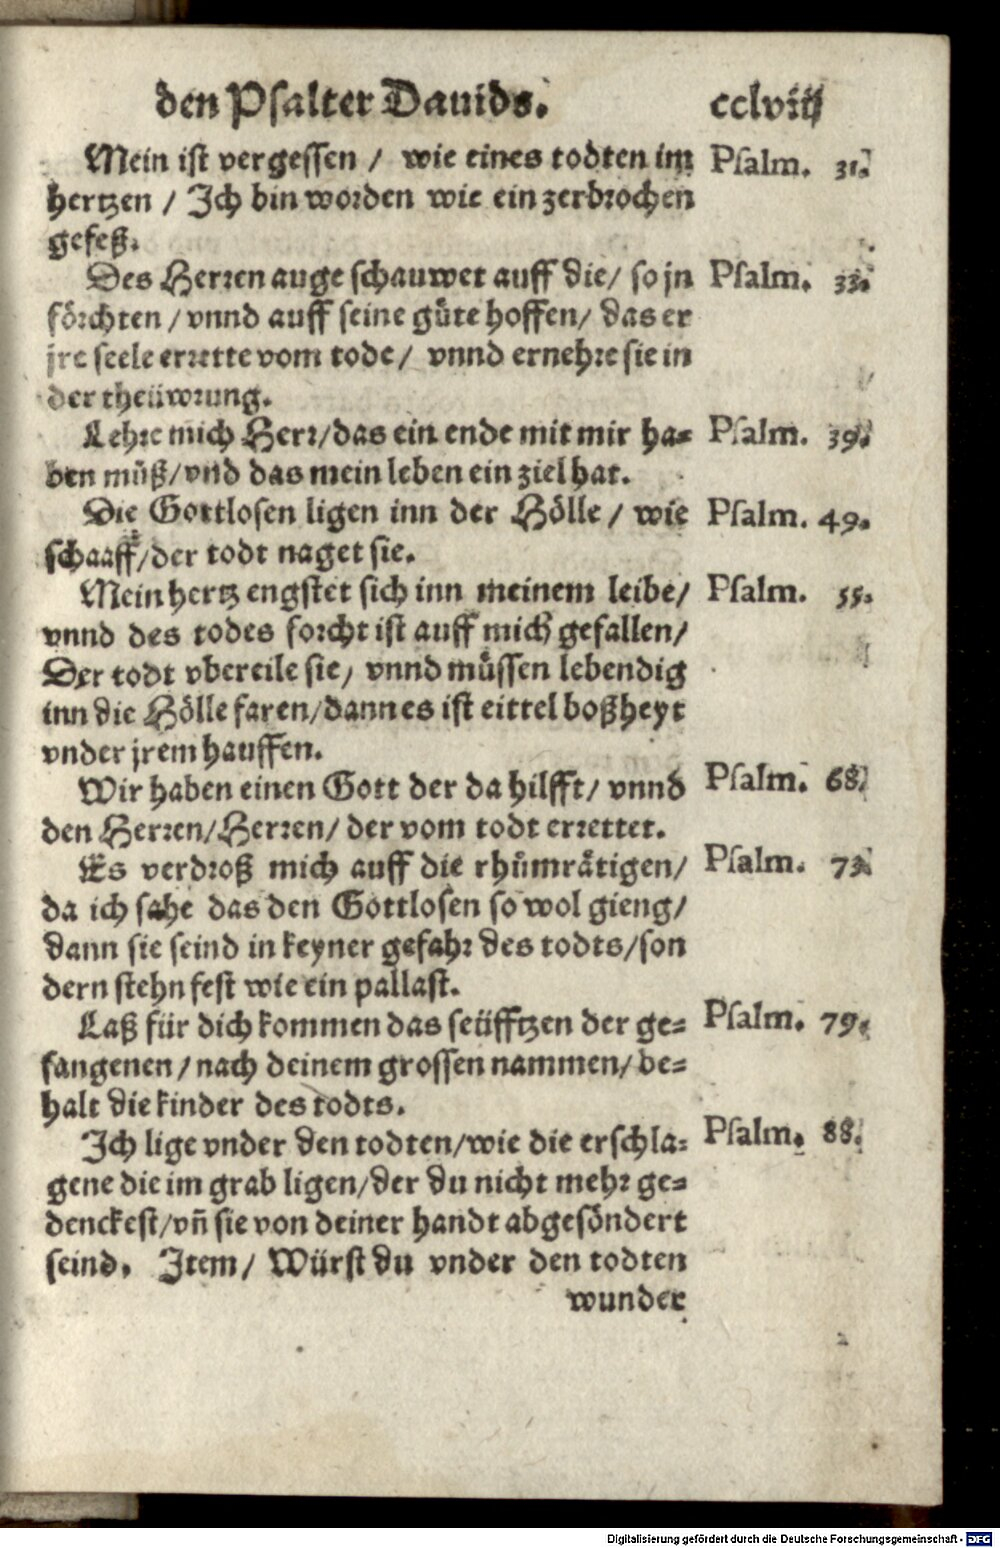 den Psalter Dauids. cclviij
Mein ist vergessen / wie eines todten im Psalm. 31.
hertzen / Ich bin worden wie ein zerbrochen
gefeß.
Des Herren auge schauwet auff die / so jn Psalm. 33.
förchten / vnnd auff seine güte hoffen / das er
jre seele errette vom tode / vnnd ernehre sie in
der theüwrung.
Lehre mich Herr / das ein ende mit mir ha= Psalm. 39.
ben müß / vnd das mein leben ein ziel hat.
Die Gottlosen ligen inn der Hölle / wie Psalm. 49.
schaaff / der todt naget sie.
Mein hertz engstet sich inn meinem leibe / Psalm. 55.
vnnd des todes forcht ist auff mich gefallen /
Der todt vbereile sie / vnnd müssen lebendig
inn die Hölle faren / dann es ist eittel boßheyt
vnder jrem hauffen.
Wir haben einen Gott der da hilfft / vnnd Psalm. 68.
den Herren / Herren / der vom todt errettet.
Es verdroß mich auff die rhümrätigen / Psalm. 73.
da ich sahe das den Gottlosen so wol gieng /
dann sie seind in keyner gefahr des todts / son
dern stehn fest wie ein pallast.
Laß für dich kommen das seüfftzen der ge= Psalm. 79.
fangenen / nach deinem grossen nammen / be=
halt die kinder des todts.
Ich lige vnder den todten / wie die erschla= Psalm. 88.
gene die im grab ligen / der du nicht mehr ge=
denckest / vñ sie von deiner handt abgesöndert
seind. Item / Würst du vnder den todten
wunder
Digitalisierung gefördert durch die Deutsche Forschungsgemeinschaft - DFG